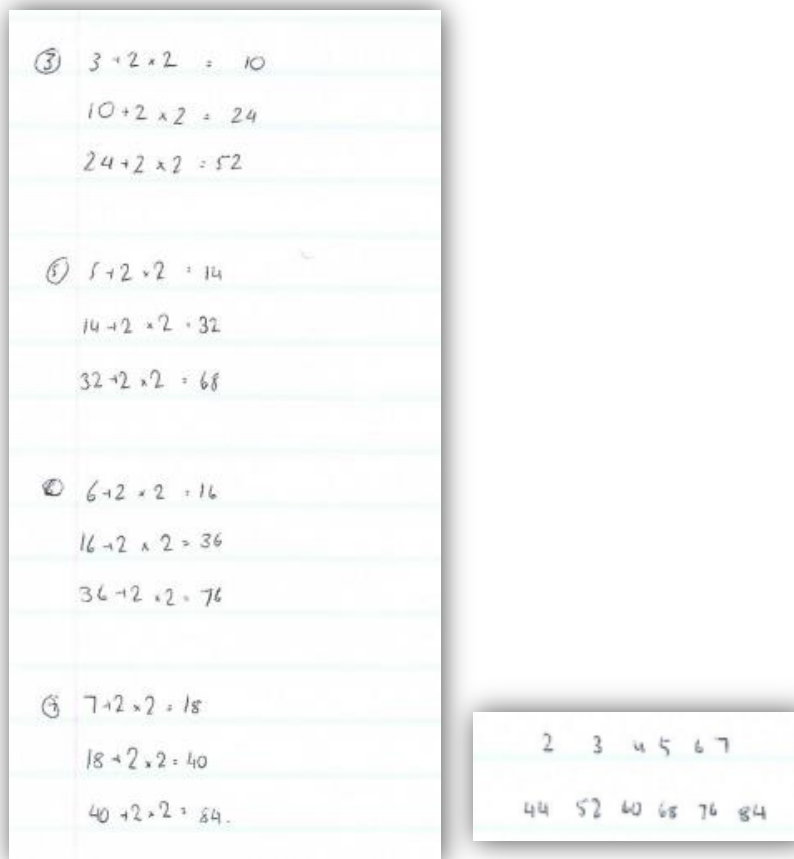 ③ 3 + 2 × 2 = 10
10 + 2 × 2 = 24
24 + 2 × 2 = 52
⑤ 5 + 2 × 2 = 14
14 + 2 × 2 = 32
32 + 2 × 2 = 68
⑥ 6 + 2 × 2 = 16
16 + 2 × 2 = 36
36 + 2 × 2 = 76
⑦ 7 + 2 × 2 = 18
18 + 2 × 2 = 40
40 + 2 × 2 = 84.
2 3 4 5 6 7
44 52 60 68 76 84